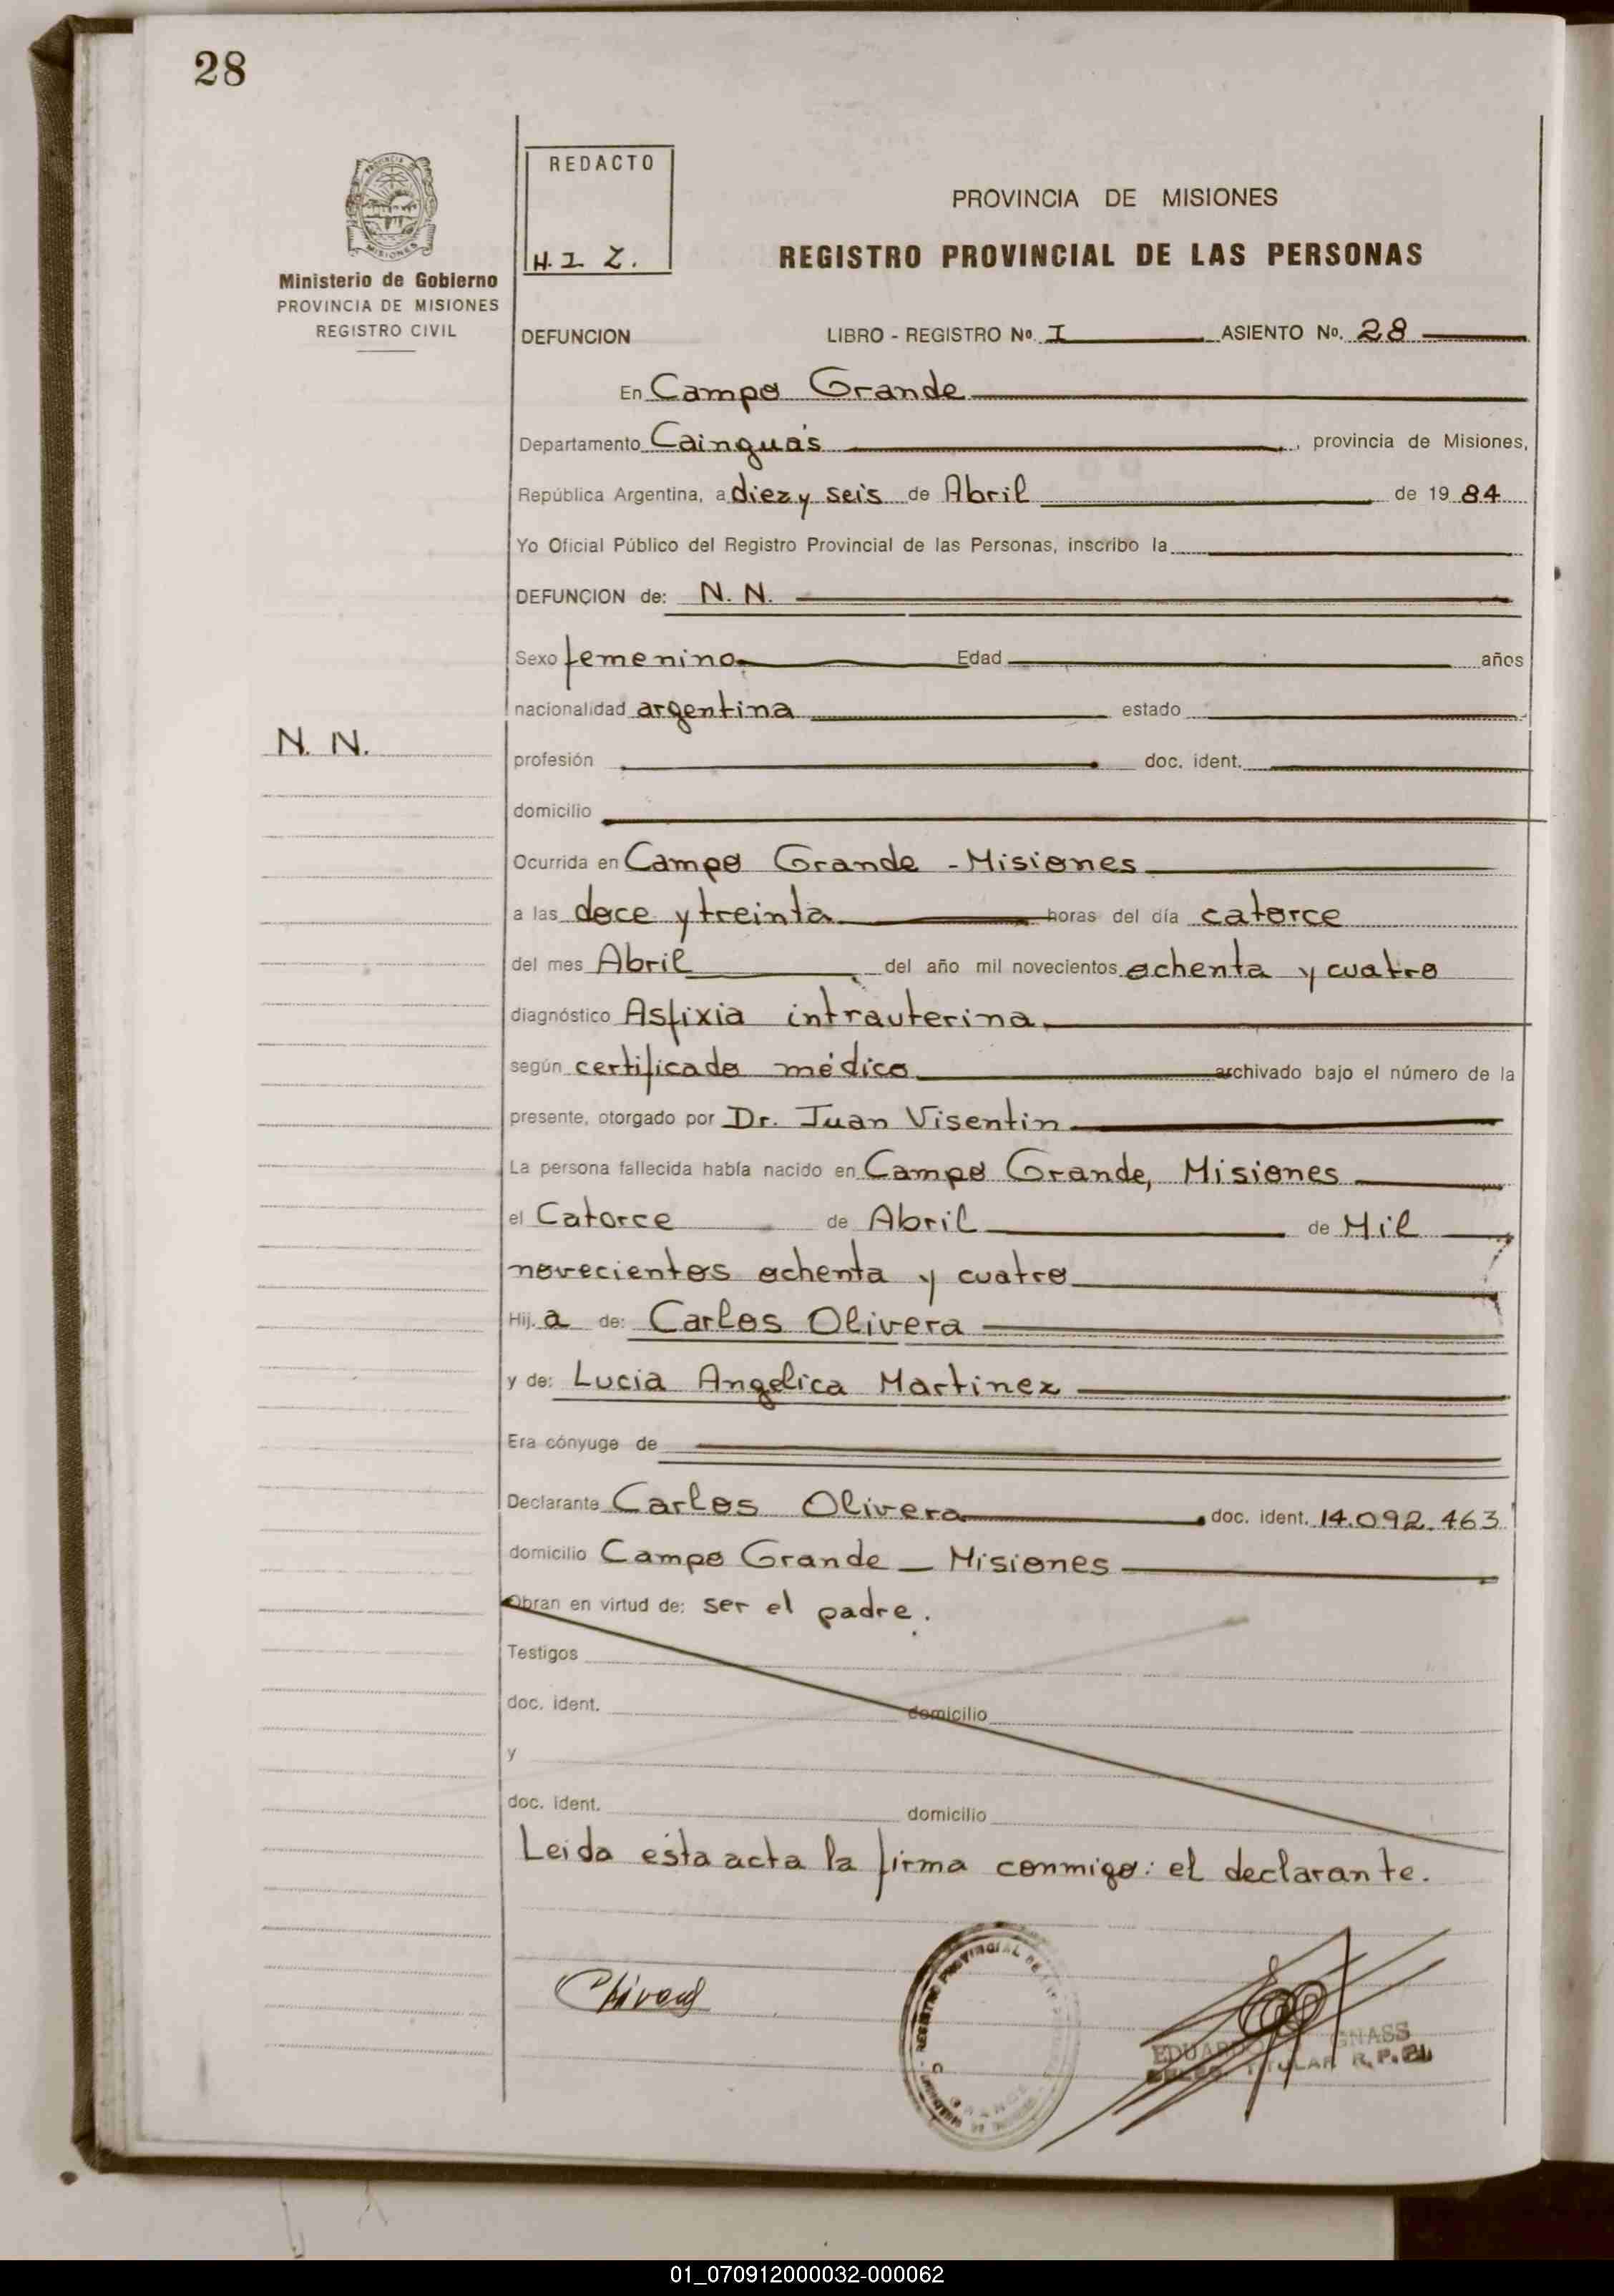 28
REDACTO
H. I Z.
Ministerio de Gobierno
PROVINCIA DE MISIONES
REGISTRO CIVIL
PROVINCIA DE MISIONES
REGISTRO PROVINCIAL DE LAS PERSONAS
DEFUNCION LIBRO - REGISTRO Nº. I ASIENTO Nº. 28
En Campo Grande
Departamento Cainguás, provincia de Misiones,
República Argentina, a diez y seis de Abril de 19 84
Yo Oficial Público del Registro Provincial de las Personas, inscribo la
DEFUNCION de: N. N.
Sexo femenino Edad años
nacionalidad argentina estado
N. N.
profesión doc. ident.
domicilio
Ocurrida en Campo Grande - Misiones
a las doce y treinta horas del día catorce
del mes Abril del año mil novecientos ochenta y cuatro
diagnóstico Asfixia intrauterina
según certificado médico archivado bajo el número de la
presente, otorgado por Dr. Juan Visentin
La persona fallecida había nacido en Campo Grande, Misiones
el Catorce de Abril de Mil
novecientos ochenta y cuatro
Hij. a de: Carlos Olivera
y de: Lucia Angelica Martinez
Era cónyuge de
Declarante Carlos Olivera doc. ident. 14.092.463
domicilio Campo Grande - Misiones
Obran en virtud de: ser el padre.
Testigos
doc. ident. domicilio
y
doc. ident. domicilio
Leida esta acta la firma conmigo: el declarante.
REGISTRO PROVINCIAL DE
GRANDE
EDUARDO GNASS
TITULAR R.P.
01_070912000032-000062